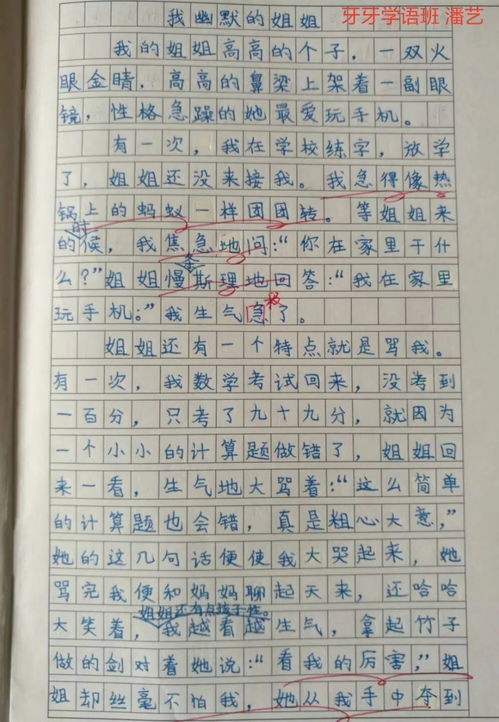 牙牙学语班 潘艺
我幽默的姐姐
我的姐姐高高的个子，一双火
眼金睛，高高的鼻梁上架着一副眼
镜，性格急躁的她最爱玩手机。
有一次，我在学校练字，放学
了，姐姐还没来接我。我急得像热
锅上的蚂蚁一样团团转。等姐姐来
时
的候，我焦急地问：“你在家里干什
条
么？”姐姐慢斯理地回答：“我在家里
极
玩手机。”我生气急了。
姐姐还有一个特点就是骂我。
有一次，我数学考试回来，没考到
一百分，只考了九十九分，就因为
一个小小的计算题做错了，姐姐回
来一看，生气地大骂着：“这么简单
的计算题也会错，真是粗心大意，”
她的这几句话便使我大哭起来，她
骂完我便和妈妈聊起天来，还哈哈
姐姐还有点孩子性。
大笑着，我越看越生气，拿起竹子
做的剑对着她说：“看我的厉害，”姐
姐却丝毫不怕我，她从我手中夺到